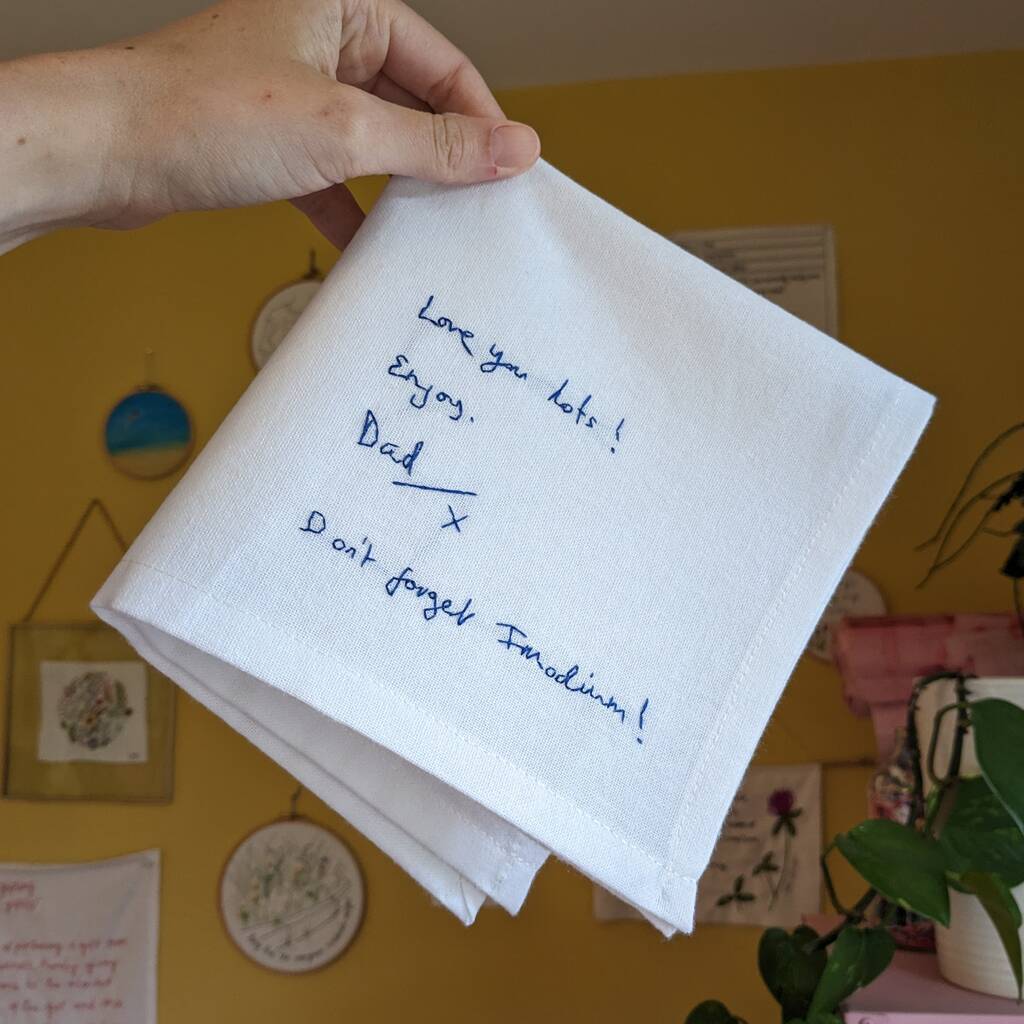 Love you lots!
Enjoy.
Dad
X
Don't forget Imodium!